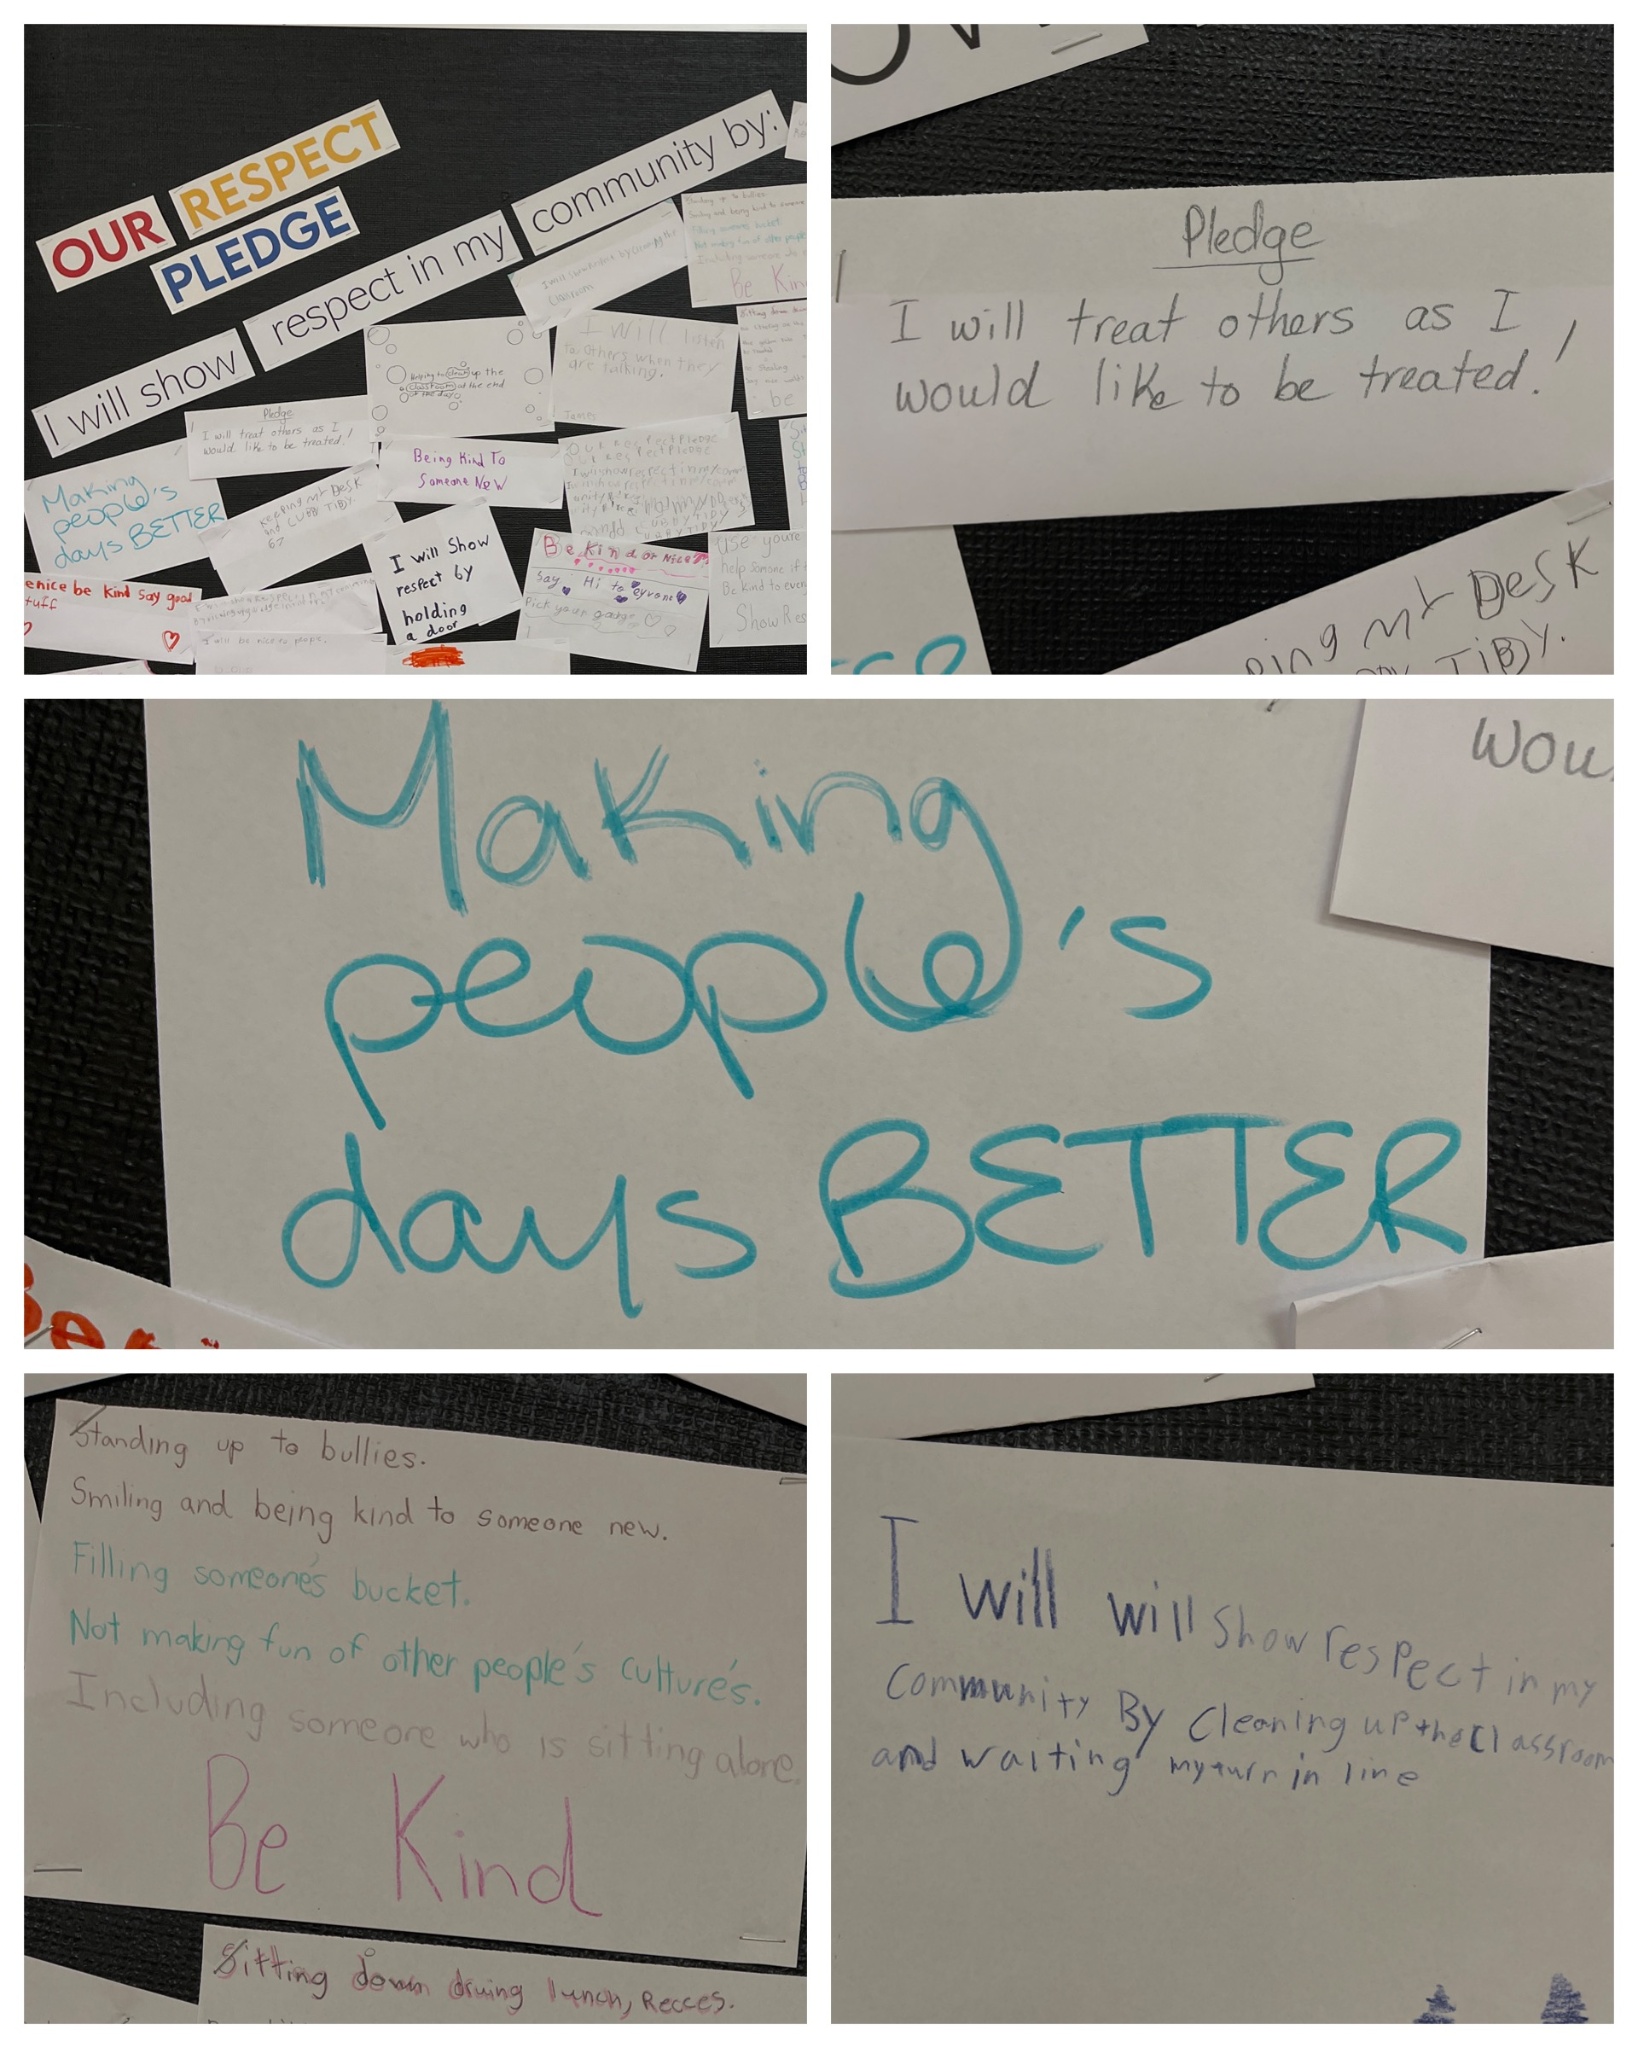 OUR RESPECT
PLEDGE
I will show respect in my community by:
Standing up to bullies
Smiling and being kind to someone
Filling someones bucket
Not making fun of other people
Including someone who
Be Kin
I will
by cleaning the
classroom
I will listen
to others when they
are talking.
James
Helping to clean up the
classroom at the end
of the day
Pledge
I will treat others as I
would like to be treated!
Being Kind To
Someone New
Making
people's
days BETTER
Keeping my Desk
and CUBBY TiBy.
I will Show
respect by
holding
a door
Be kind or Nice
Say Hi to eyvone
Pick your gabge
use youre
help somone if
Be kind to ever
Show Res
enice be kind say good
tuff
I will be nice to peops.
be
Pledge
I will treat others as I
would like to be treated!
ping my Desk
TiBy.
Making
people's
days BETTER
wou
Be
Standing up to bullies.
Smiling and being kind to someone new.
Filling someone's bucket.
Not making fun of other people's culture's.
Including someone who is sitting alone.
Be Kind
Sitting down druing lunch, Recces.
I will will show respect in my
community By cleaning up the classroom
and waiting my turn in line